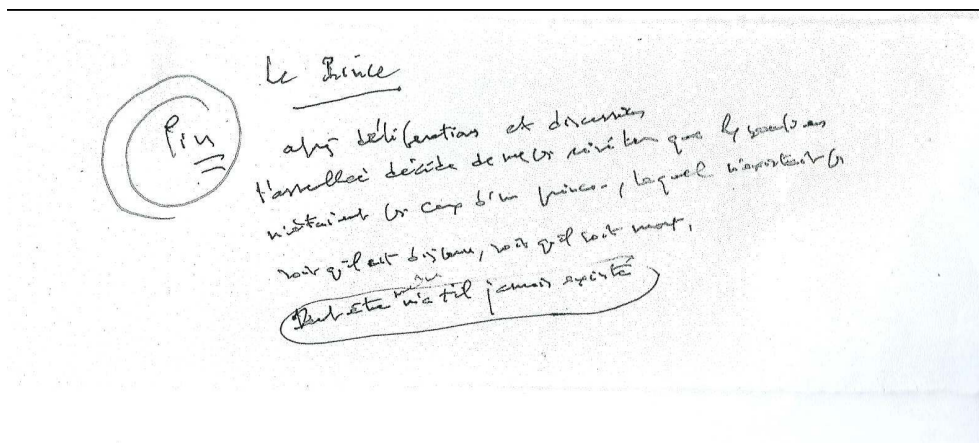 Le Prince
Fin
après délibération et discussion
l'assemblée décide de ne que
n'étaient d'un prince, lequel n'existait
soit qu'il ait disparu, soit qu'il soit mort,
Peut être même n'a t il jamais existé